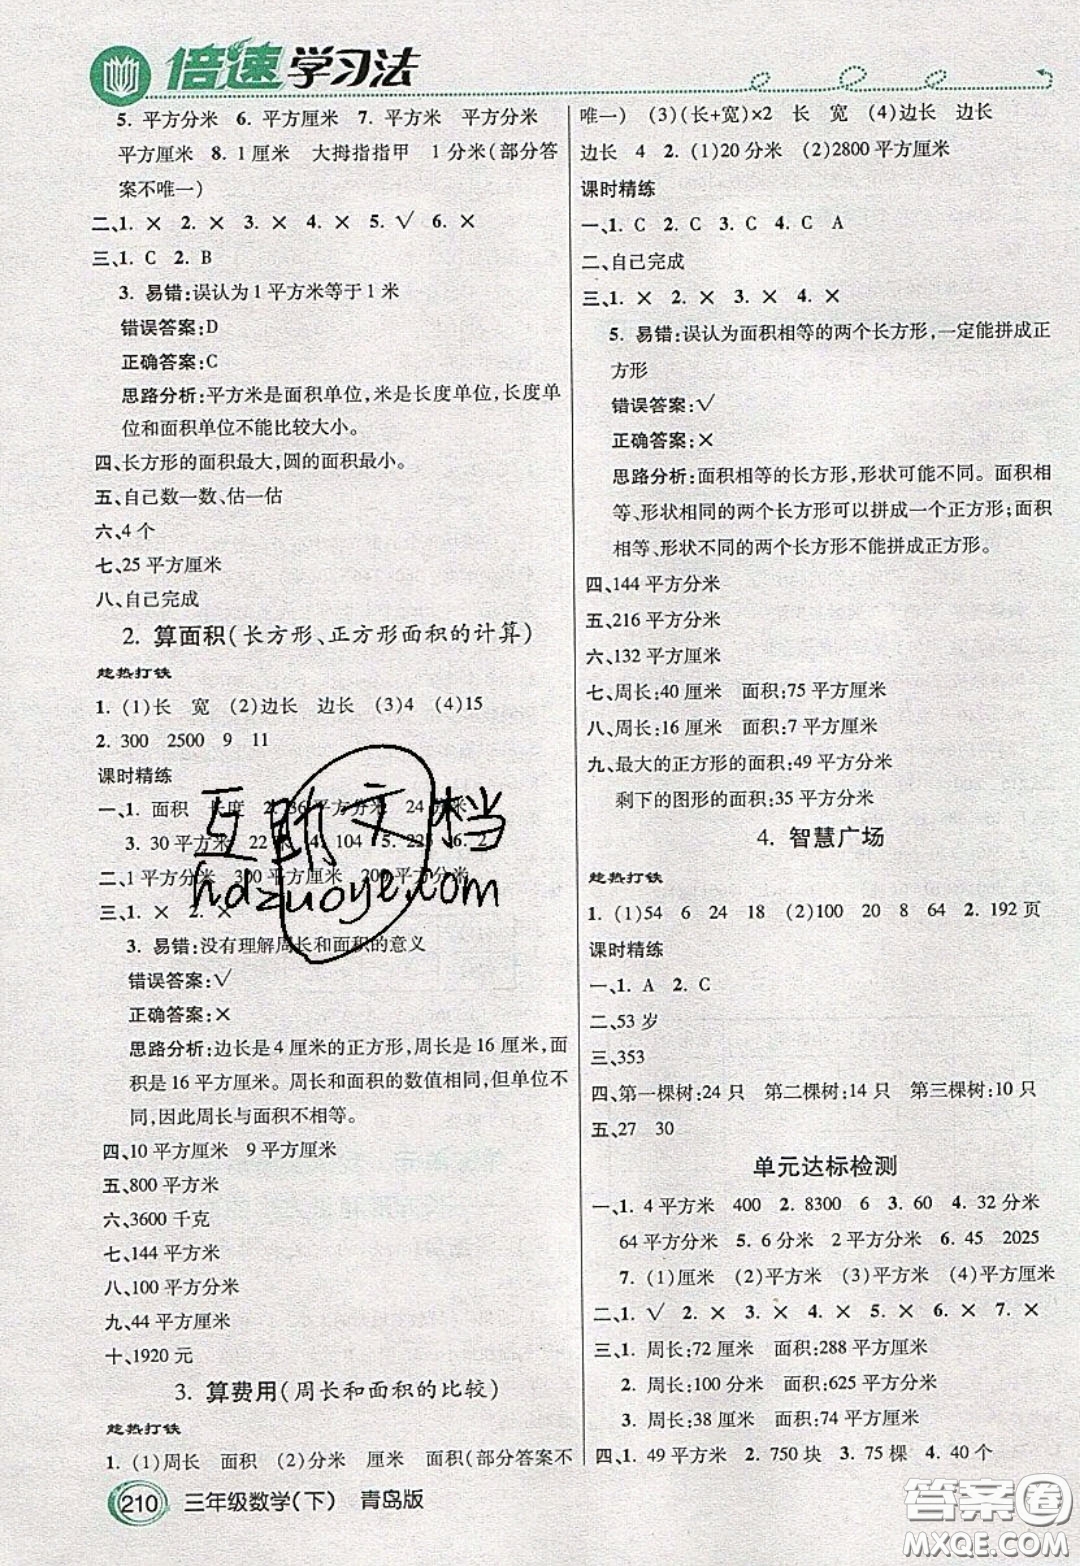 倍速学习法
5. 平方分米 6. 平方厘米 7. 平方米 平方分米
平方厘米 8. 1厘米 大拇指指甲 1分米(部分答
案不唯一)
二、1. × 2. × 3. × 4. × 5. √ 6. ×
三、1. C 2. B
3. 易错:误认为1平方米等于1米
错误答案:D
正确答案:C
思路分析:平方米是面积单位,米是长度单位,长度单
位和面积单位不能比较大小。
四、长方形的面积最大,圆的面积最小。
五、自己数一数、估一估
六、4个
七、25平方厘米
八、自己完成
2. 算面积(长方形、正方形面积的计算)
趁热打铁
1. (1)长 宽 (2)边长 边长 (3)4 (4)15
2. 300 2500 9 11
课时精练
一、1. 面积 长度 2. 36平方分米 24分米
3. 30平方厘米 22厘米 4. 104 5. 225 6. 2
二、1平方分米 300平方厘米 200平方分米
三、1. × 2. ×
3. 易错:没有理解周长和面积的意义
错误答案:√
正确答案:×
思路分析:边长是4厘米的正方形,周长是16厘米,面
积是16平方厘米。周长和面积的数值相同,但单位不
同,因此周长与面积不相等。
四、10平方厘米 9平方厘米
五、800平方米
六、3600千克
七、144平方米
八、100平方分米
九、44平方厘米
十、1920元
3. 算费用(周长和面积的比较)
趁热打铁
1. (1)周长 面积 (2)分米 厘米 面积(部分答案不
唯一) (3)(长+宽)×2 长 宽 (4)边长 边长
边长 4 2. (1)20分米 (2)2800平方厘米
课时精练
一、1. C 2. C 3. C 4. C A
二、自己完成
三、1. × 2. × 3. × 4. ×
5. 易错:误认为面积相等的两个长方形,一定能拼成正
方形
错误答案:√
正确答案:×
思路分析:面积相等的长方形,形状可能不同。面积相
等、形状相同的两个长方形可以拼成一个正方形;面积
相等、形状不同的两个长方形不能拼成正方形。
四、144平方分米
五、216平方分米
六、132平方厘米
七、周长:40厘米 面积:75平方厘米
八、周长:16厘米 面积:7平方厘米
九、最大的正方形的面积:49平方厘米
剩下的图形的面积:35平方厘米
4. 智慧广场
趁热打铁
1. (1)54 6 24 18 (2)100 20 8 64 2. 192页
课时精练
一、1. A 2. C
二、53岁
三、353
四、第一棵树:24只 第二棵树:14只 第三棵树:10只
五、27 30
单元达标检测
一、1. 4平方米 400 2. 8300 6 3. 60 4. 32分米
64平方分米 5. 6分米 2平方分米 6. 45 2025
7. (1)厘米 (2)平方米 (3)平方米 (4)平方厘米
二、1. √ 2. × 3. × 4. × 5. × 6. × 7. ×
三、1. 周长:72厘米 面积:288平方厘米
2. 周长:100分米 面积:625平方分米
3. 周长:38厘米 面积:74平方厘米
四、1. 49平方米 2. 750块 3. 75棵 4. 40个
210 三年级数学(下) 青岛版
互助文档
hdzuoye.com
答案圈
MXQE.COM